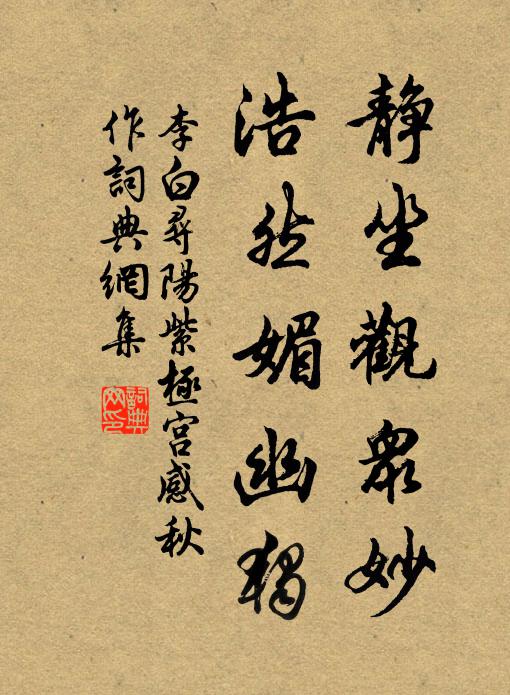 靜坐觀衆妙
浩然媚幽獨
李白尋陽紫極宮感秋
作詞典網集
詞典
网印